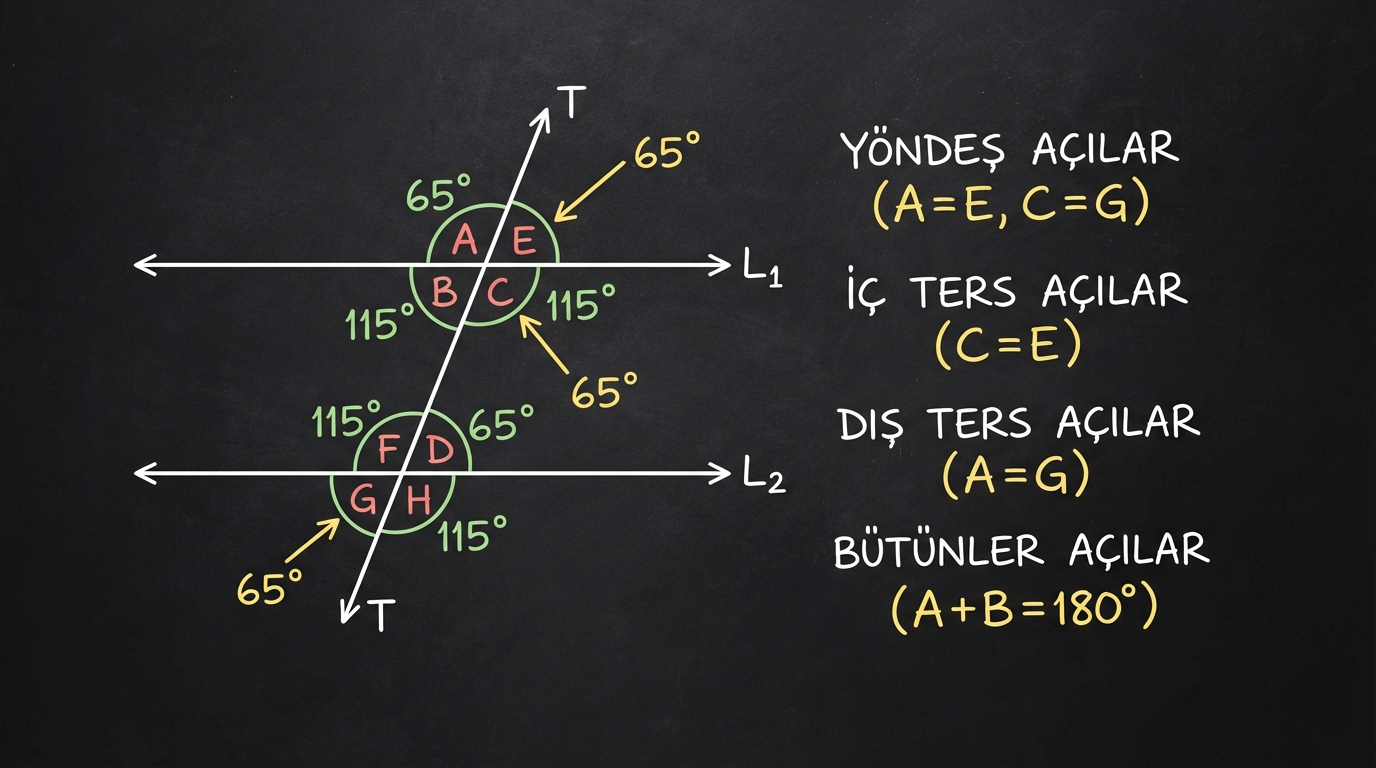 T
65°
65°
A E
L₁
B C
115°
115°
65°
115°
65°
F D
L₂
G H
115°
65°
T
YÖNDEŞ AÇILAR
(A=E, C=G)
İÇ TERS AÇILAR
(C=E)
DIŞ TERS AÇILAR
(A=G)
BÜTÜNLER AÇILAR
(A+B=180°)